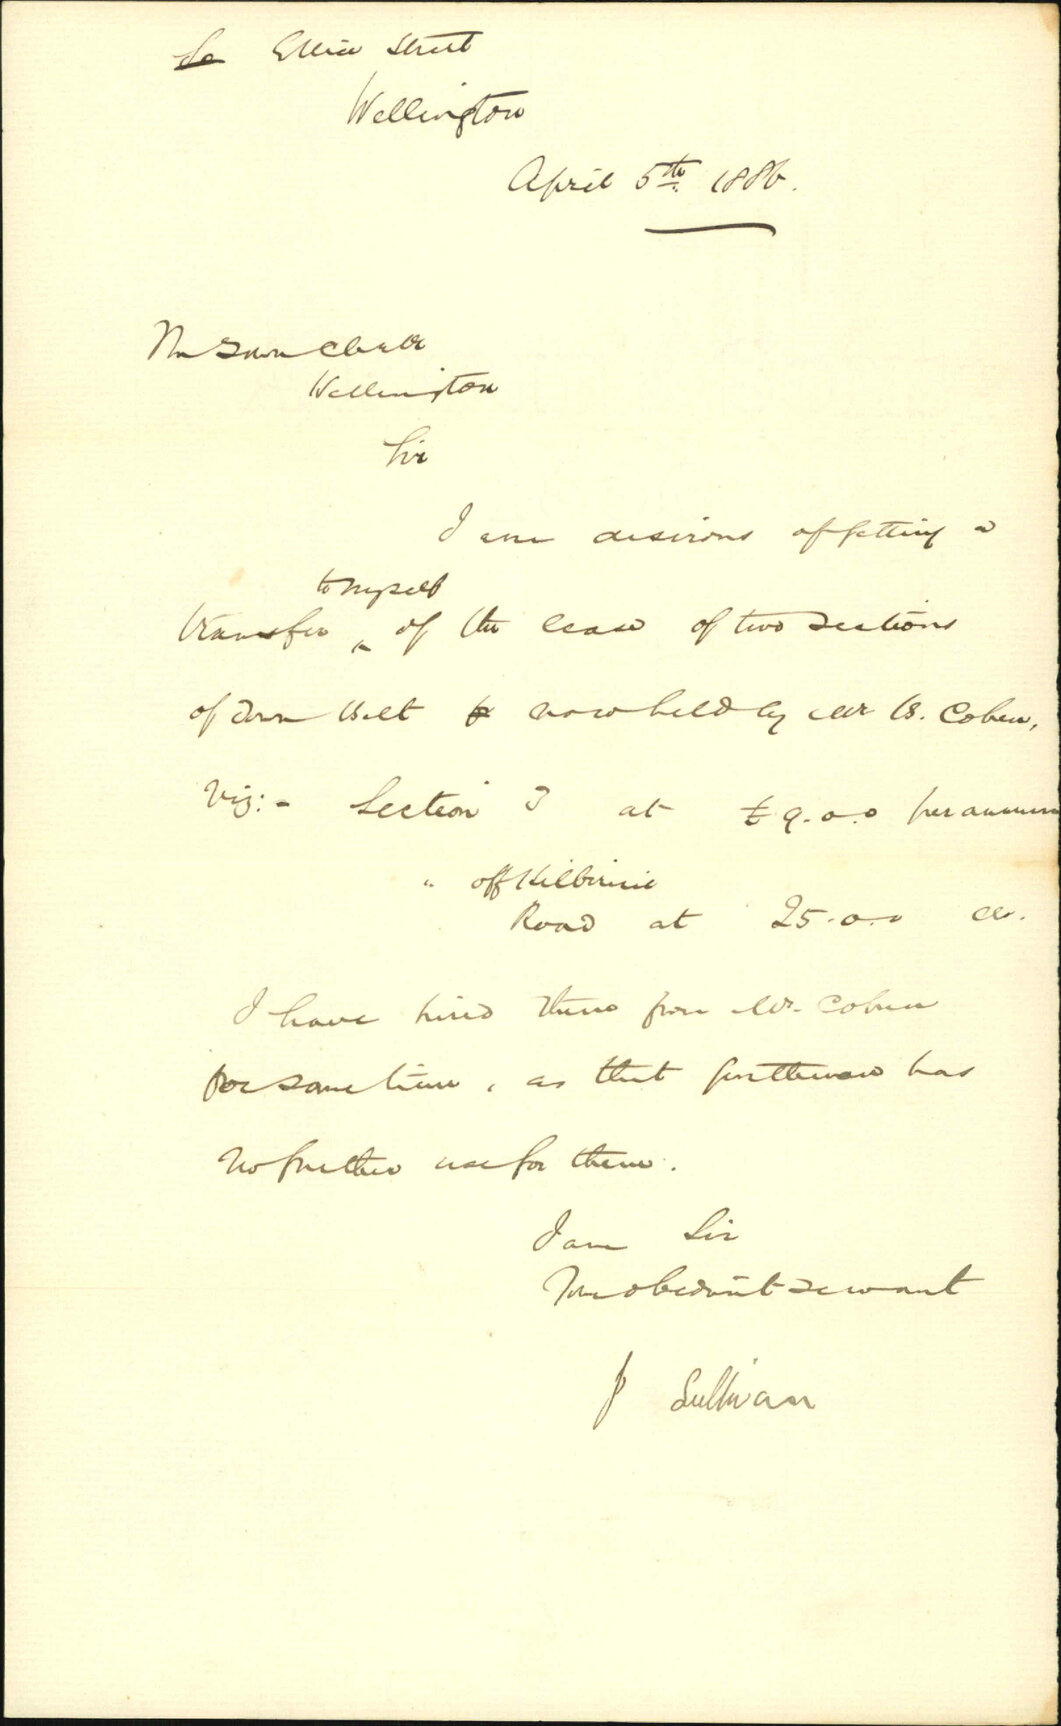 Ellice Street
Wellington
April 5th. 1886.
Town Clerk
Wellington
Sir
I am desirous of getting a
to myself
transfer ^ of the lease of two sections
of Town Belt now held by Mr B. Cohen,
Viz:- Section 3 at £9.0.0 per annum
" off Kilbirnie
Road at 25.0.0
I have hired them from Mr. Cohen
for some time, as that gentleman has
no further use for them.
I am Sir
Your obedient servant
J Sullivan